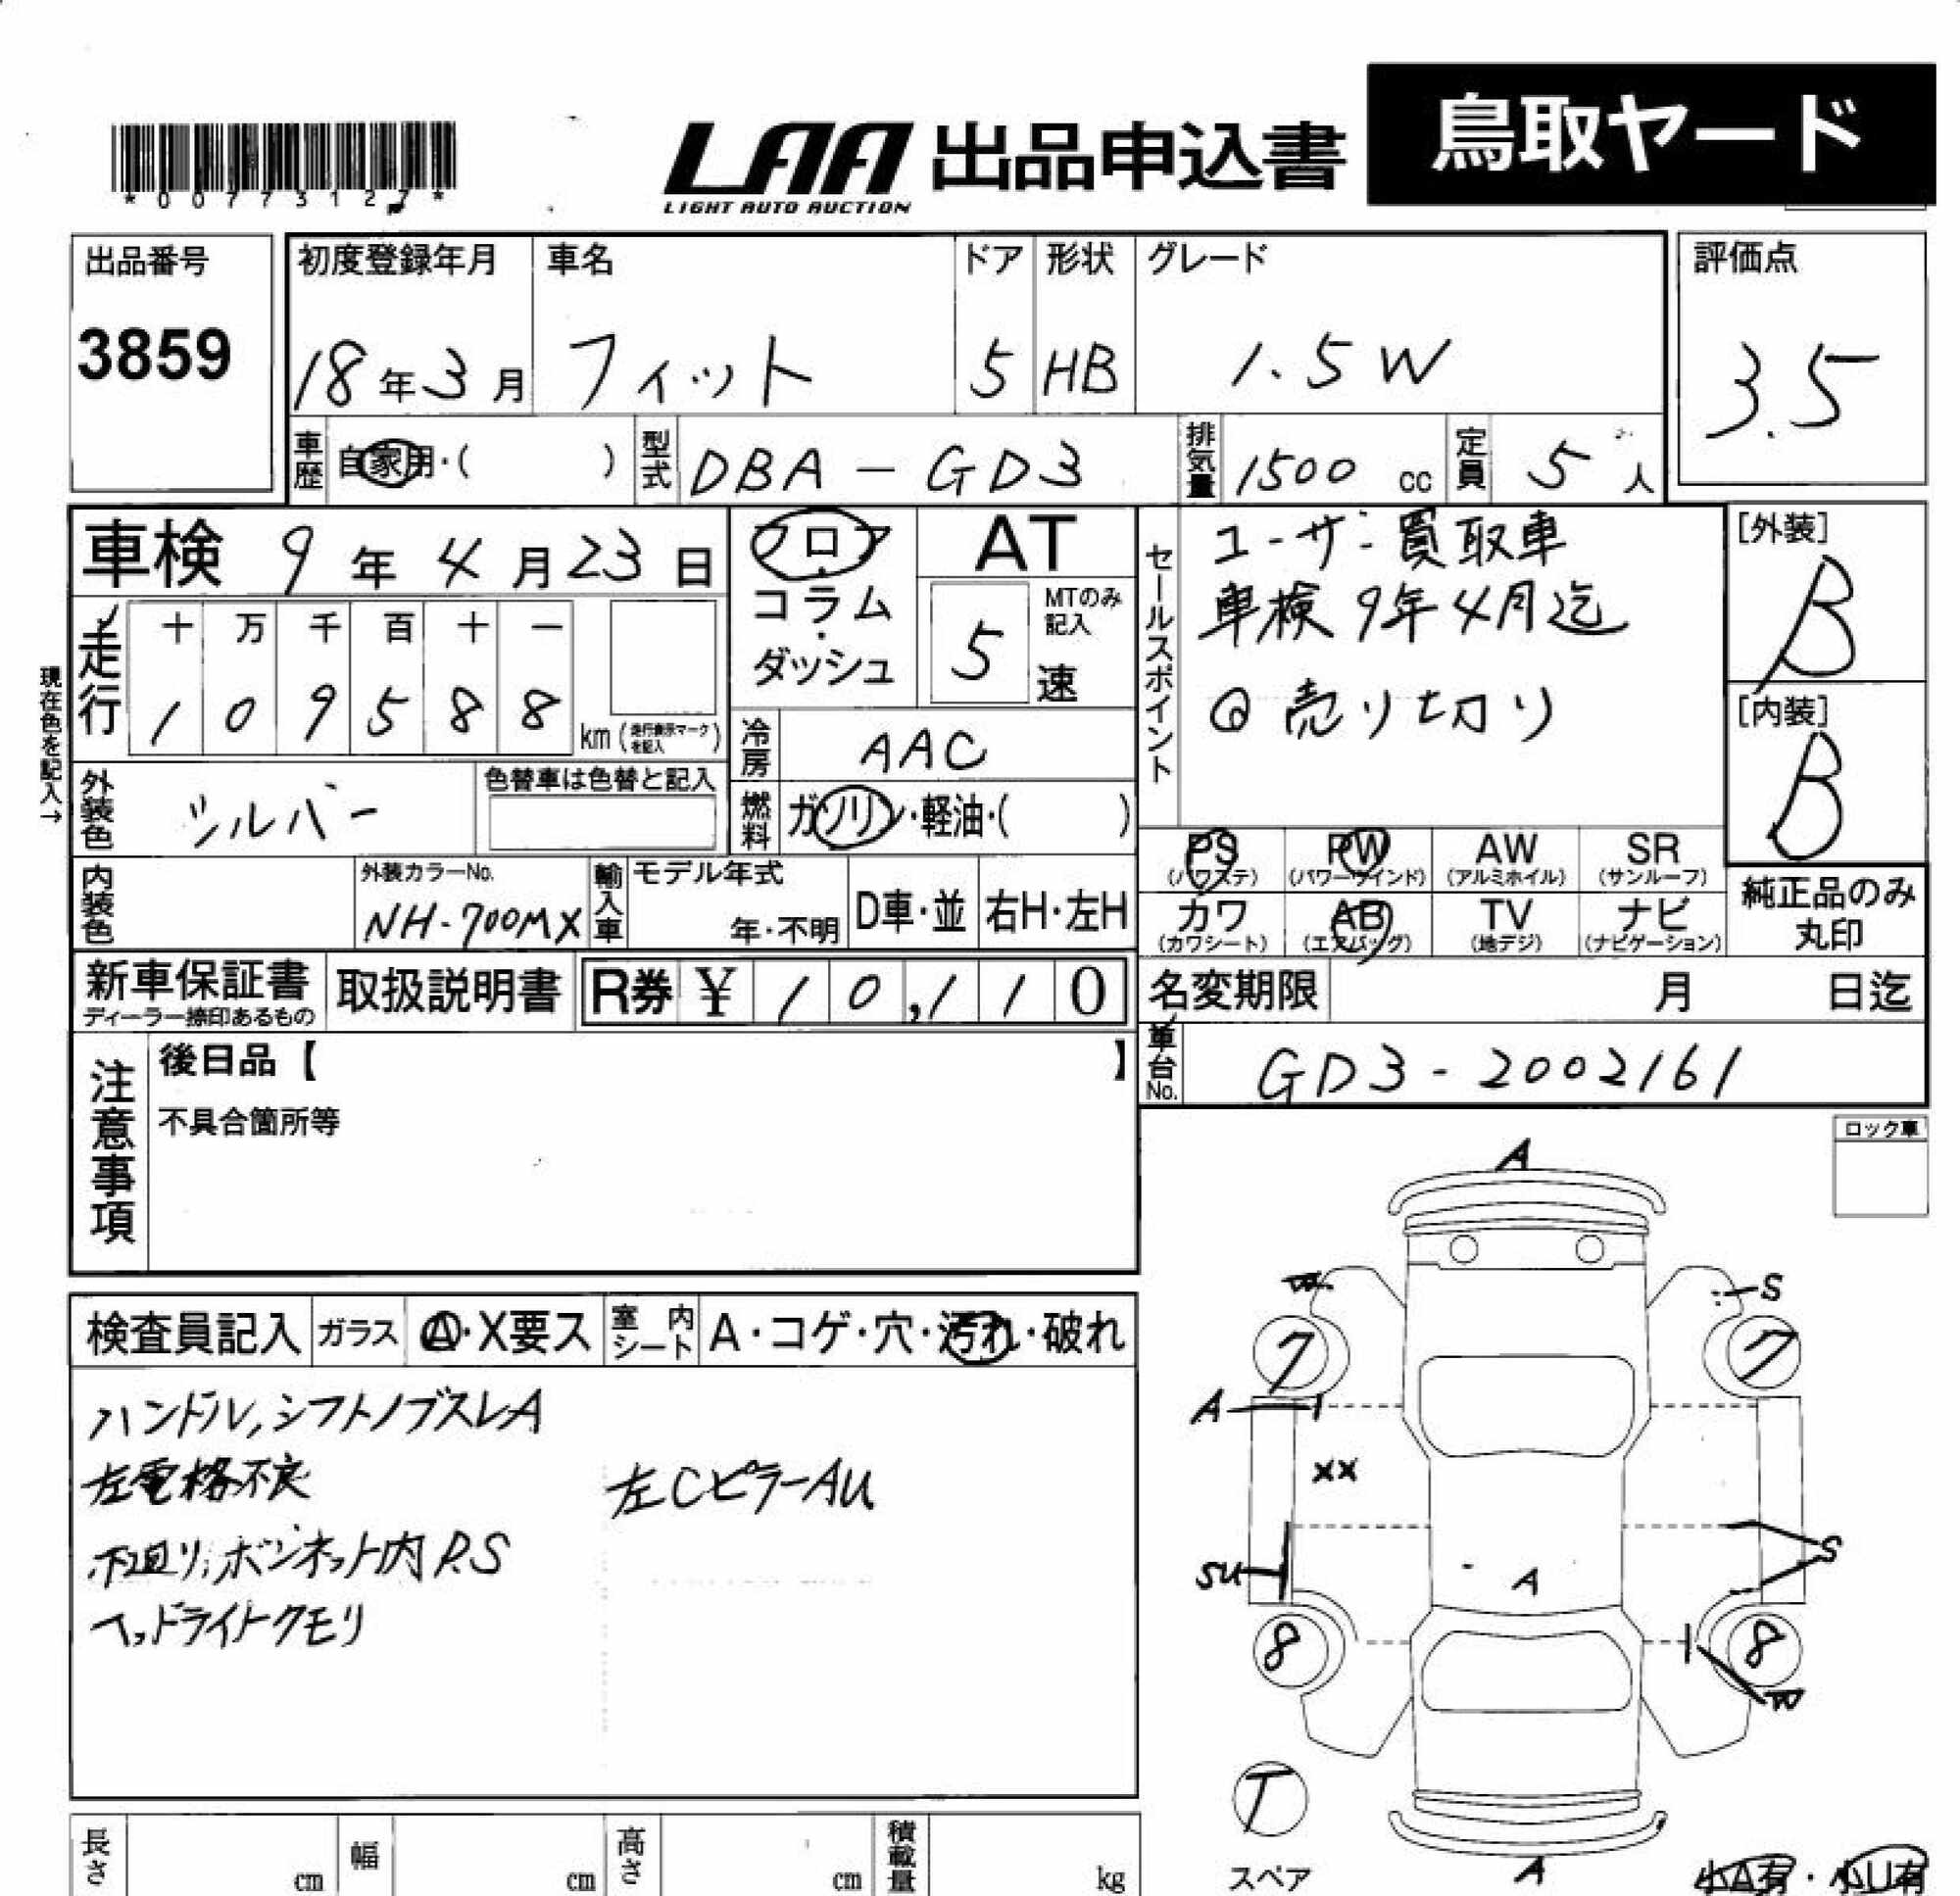 *0077312 7*
LAA 出品申込書 鳥取ヤード
LIGHT AUTO AUCTION
出品番号
3859
初度登録年月 車名 ドア 形状 グレード
18年3月 フィット 5 HB 1.5W
評価点
3.5
車歴 自家用・( ) 型式 DBA-GD3 排気量 1500 cc 定員 5 人
車検 9年4月23日
フロア・コラム・ダッシュ
AT
MTのみ記入
5 速
セールスポイント
ユーザー買取車
車検9年4月迄
◎売り切り
[外装]
B
[内装]
B
現在色を記入→
走行 十 万 千 百 十 一
1 0 9 5 8 8 km (走行表示マークを記入)
冷房 AAC
外装色 シルバー 色替車は色替と記入
燃料 ガソリン・軽油・( )
PS AW SR
(パワステ) (パワーウインド) (アルミホイル) (サンルーフ)
PW
カワ AB TV ナビ
(カワシート) (エアバッグ) (地デジ) (ナビゲーション)
純正品のみ
丸印
内装色 外装カラーNo. NH-700MX 輸入車 モデル年式 年・不明 D車・並 右H・左H
新車保証書 取扱説明書 R券 ¥ 10,110
ディーラー捺印あるもの
名変期限 月 日迄
車台No. GD3-2002161
注意事項
後日品【 】
不具合箇所等
ロック車
検査員記入 ガラス A・X要ス 室内シート A・コゲ・穴・汚れ・破れ
ハンドル,シフトノブスレA
左電格不良 左CピラーAU
下廻り,ボンネット内P.S
ヘッドライトクモリ
A
W S
7 7
A
XX
SU A S
8 8
W
T
スペア
A
小A有・小U有
長さ cm 幅 cm 高さ cm 積載量 kg